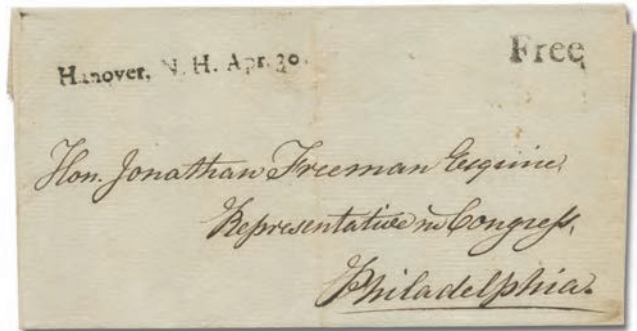 Hanover, N. H. Apr. 30.
Free
Hon. Jonathan Freeman Esquire,
Representative in Congress,
Philadelphia.